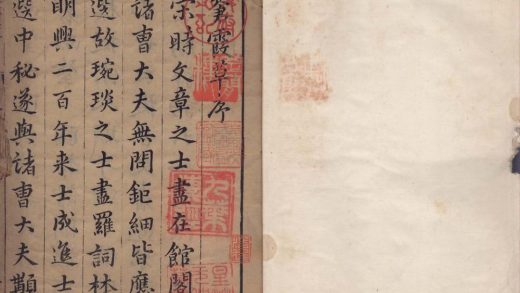 霞草序
宋時文章之士盡在館閣
諸曹大夫無問鉅細皆應
選故琬琰之士盡羅詞林
明興二百年来士成進士
選中秘遂與諸曹大夫